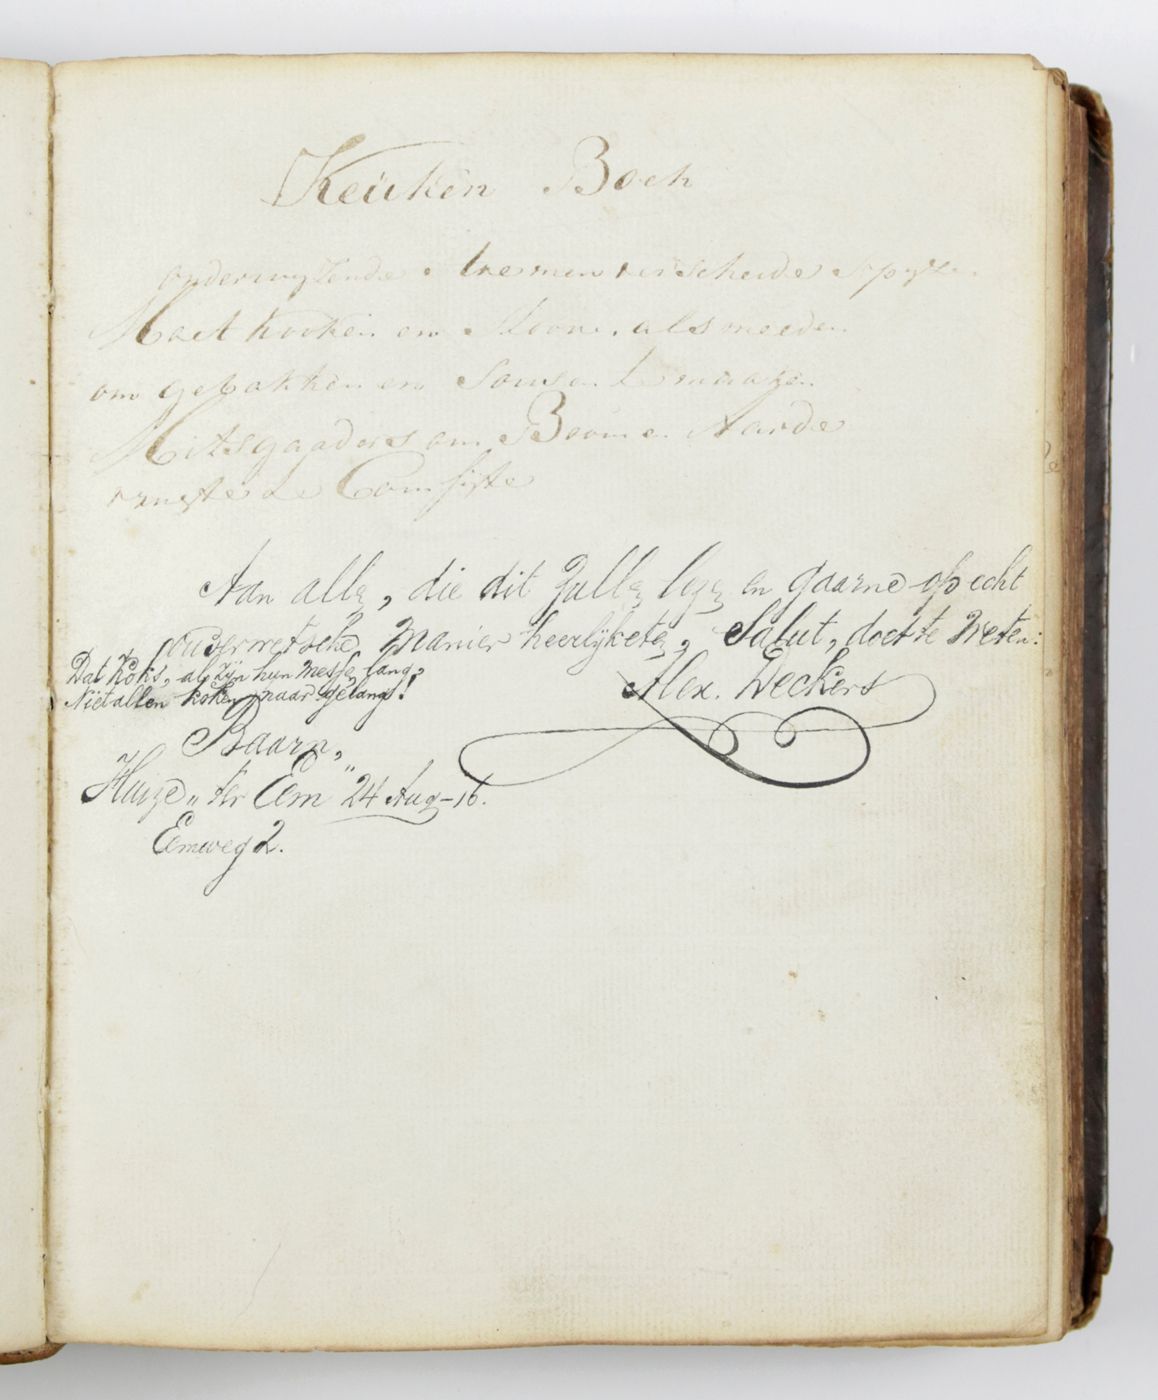 Keuken Boek
onderwyzende hoe men verscheide spyzen
Moet kooken en stoven, als meeden
om gebakken en sousen te maaken
Mitsgaaders om Boomen Aarde
vrugte te Comfijte
Aan alle, die dit zulle leze en gaarne op echt
ouderwetsche manier heerlijk ete, Salut, doet te weten:
Dat koks, al zijn hun messe lang,
Niet allen koken naar gelang!
Alex. Deckers
Baarn,
Huize „ter Eem" 24 Aug-16.
Eemweg 2.